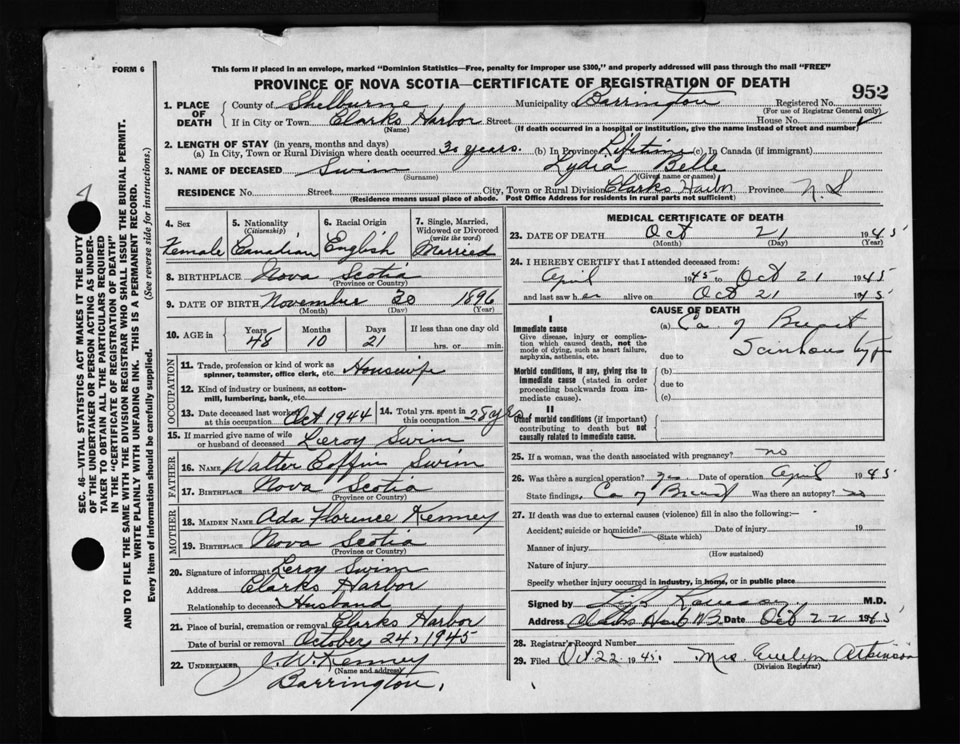 FORM 6
This form if placed in an envelope, marked "Dominion Statistics—Free, penalty for improper use $300," and properly addressed will pass through the mail "FREE"
PROVINCE OF NOVA SCOTIA—CERTIFICATE OF REGISTRATION OF DEATH
952
1. PLACE OF DEATH
County of Shelburne Municipality Barrington Registered No.
(For use of Registrar General only)
If in City or Town Clarks Harbor Street House No.
(Name) (If death occurred in a hospital or institution, give the name instead of street and number)
2. LENGTH OF STAY (in years, months and days)
(a) In City, Town or Rural Division where death occurred 30 years. (b) In Province Lifetime (c) In Canada (if immigrant)
3. NAME OF DECEASED Swim Lydia Belle
(Surname) (Given name or names)
RESIDENCE No. Street City, Town or Rural Division Clarks Harbor Province N.S
(Residence means usual place of abode. Post Office Address for residents in rural parts not sufficient)
4. Sex
Female
5. Nationality
(Citizenship)
Canadian
6. Racial Origin
English
7. Single, Married, Widowed or Divorced
(write the word)
Married
8. BIRTHPLACE Nova Scotia
(Province or Country)
9. DATE OF BIRTH November 30 1896
(Month) (Day) (Year)
10. AGE in Years Months Days If less than one day old
48 10 21 hrs. or min.
OCCUPATION
11. Trade, profession or kind of work as spinner, teamster, office clerk, etc. Housewife
12. Kind of industry or business, as cotton-mill, lumbering, bank, etc.
13. Date deceased last worked at this occupation Oct 1944
14. Total yrs. spent in this occupation 28 yrs
15. If married give name of wife or husband of deceased Leroy Swim
FATHER
16. NAME Walter Coffin Swim
17. BIRTHPLACE Nova Scotia
(Province or Country)
MOTHER
18. MAIDEN NAME Ada Florence Kenney
19. BIRTHPLACE Nova Scotia
(Province or Country)
20. Signature of informant Leroy Swim
Address Clarks Harbor
Relationship to deceased Husband
21. Place of burial, cremation or removal Clarks Harbor
Date of burial or removal October 24, 1945
22. UNDERTAKER J.W. Kenney
(Name and address)
Barrington.
MEDICAL CERTIFICATE OF DEATH
23. DATE OF DEATH Oct 21 1945
(Month) (Day) (Year)
24. I HEREBY CERTIFY that I attended deceased from:
April 1945 to Oct 21 1945
and last saw her alive on Oct 21 1945
CAUSE OF DEATH
I
Immediate cause
Give disease, injury or complication which caused death, not the mode of dying, such as heart failure, asphyxia, asthenia, etc.
(a) Ca. of Breast
due to
Morbid conditions, if any, giving rise to immediate cause (stated in order proceeding backwards from immediate).
(b)
due to
(c)
II
Other morbid conditions (if important) contributing to death but not causally related to immediate cause.
25. If a woman, was the death associated with pregnancy? no
26. Was there a surgical operation? yes Date of operation April 1945
State findings, Ca of Breast Was there an autopsy? no
27. If death was due to external causes (violence) fill in also the following:—
Accident, suicide or homicide? Date of injury 19
(State which)
Manner of injury
(How sustained)
Nature of injury
Specify whether injury occurred in industry, in home, or in public place
Signed by M.D.
Address Clarks Harb N.S. Date Oct 22 1945
28. Registrar's Record Number
29. Filed Oct. 22 1945. Mrs Evelyn Atkinson
(Division Registrar)
SEC. 46—VITAL STATISTICS ACT MAKES IT THE DUTY
OF THE UNDERTAKER OR PERSON ACTING AS UNDER-
TAKER TO OBTAIN ALL THE PARTICULARS REQUIRED
IN THE "CERTIFICATE OF REGISTRATION OF DEATH"
AND TO FILE THE SAME WITH THE DIVISION REGISTRAR WHO SHALL ISSUE THE BURIAL PERMIT.
WRITE PLAINLY WITH UNFADING INK. THIS IS A PERMANENT RECORD.
Every item of information should be carefully supplied. (See reverse side for instructions.)